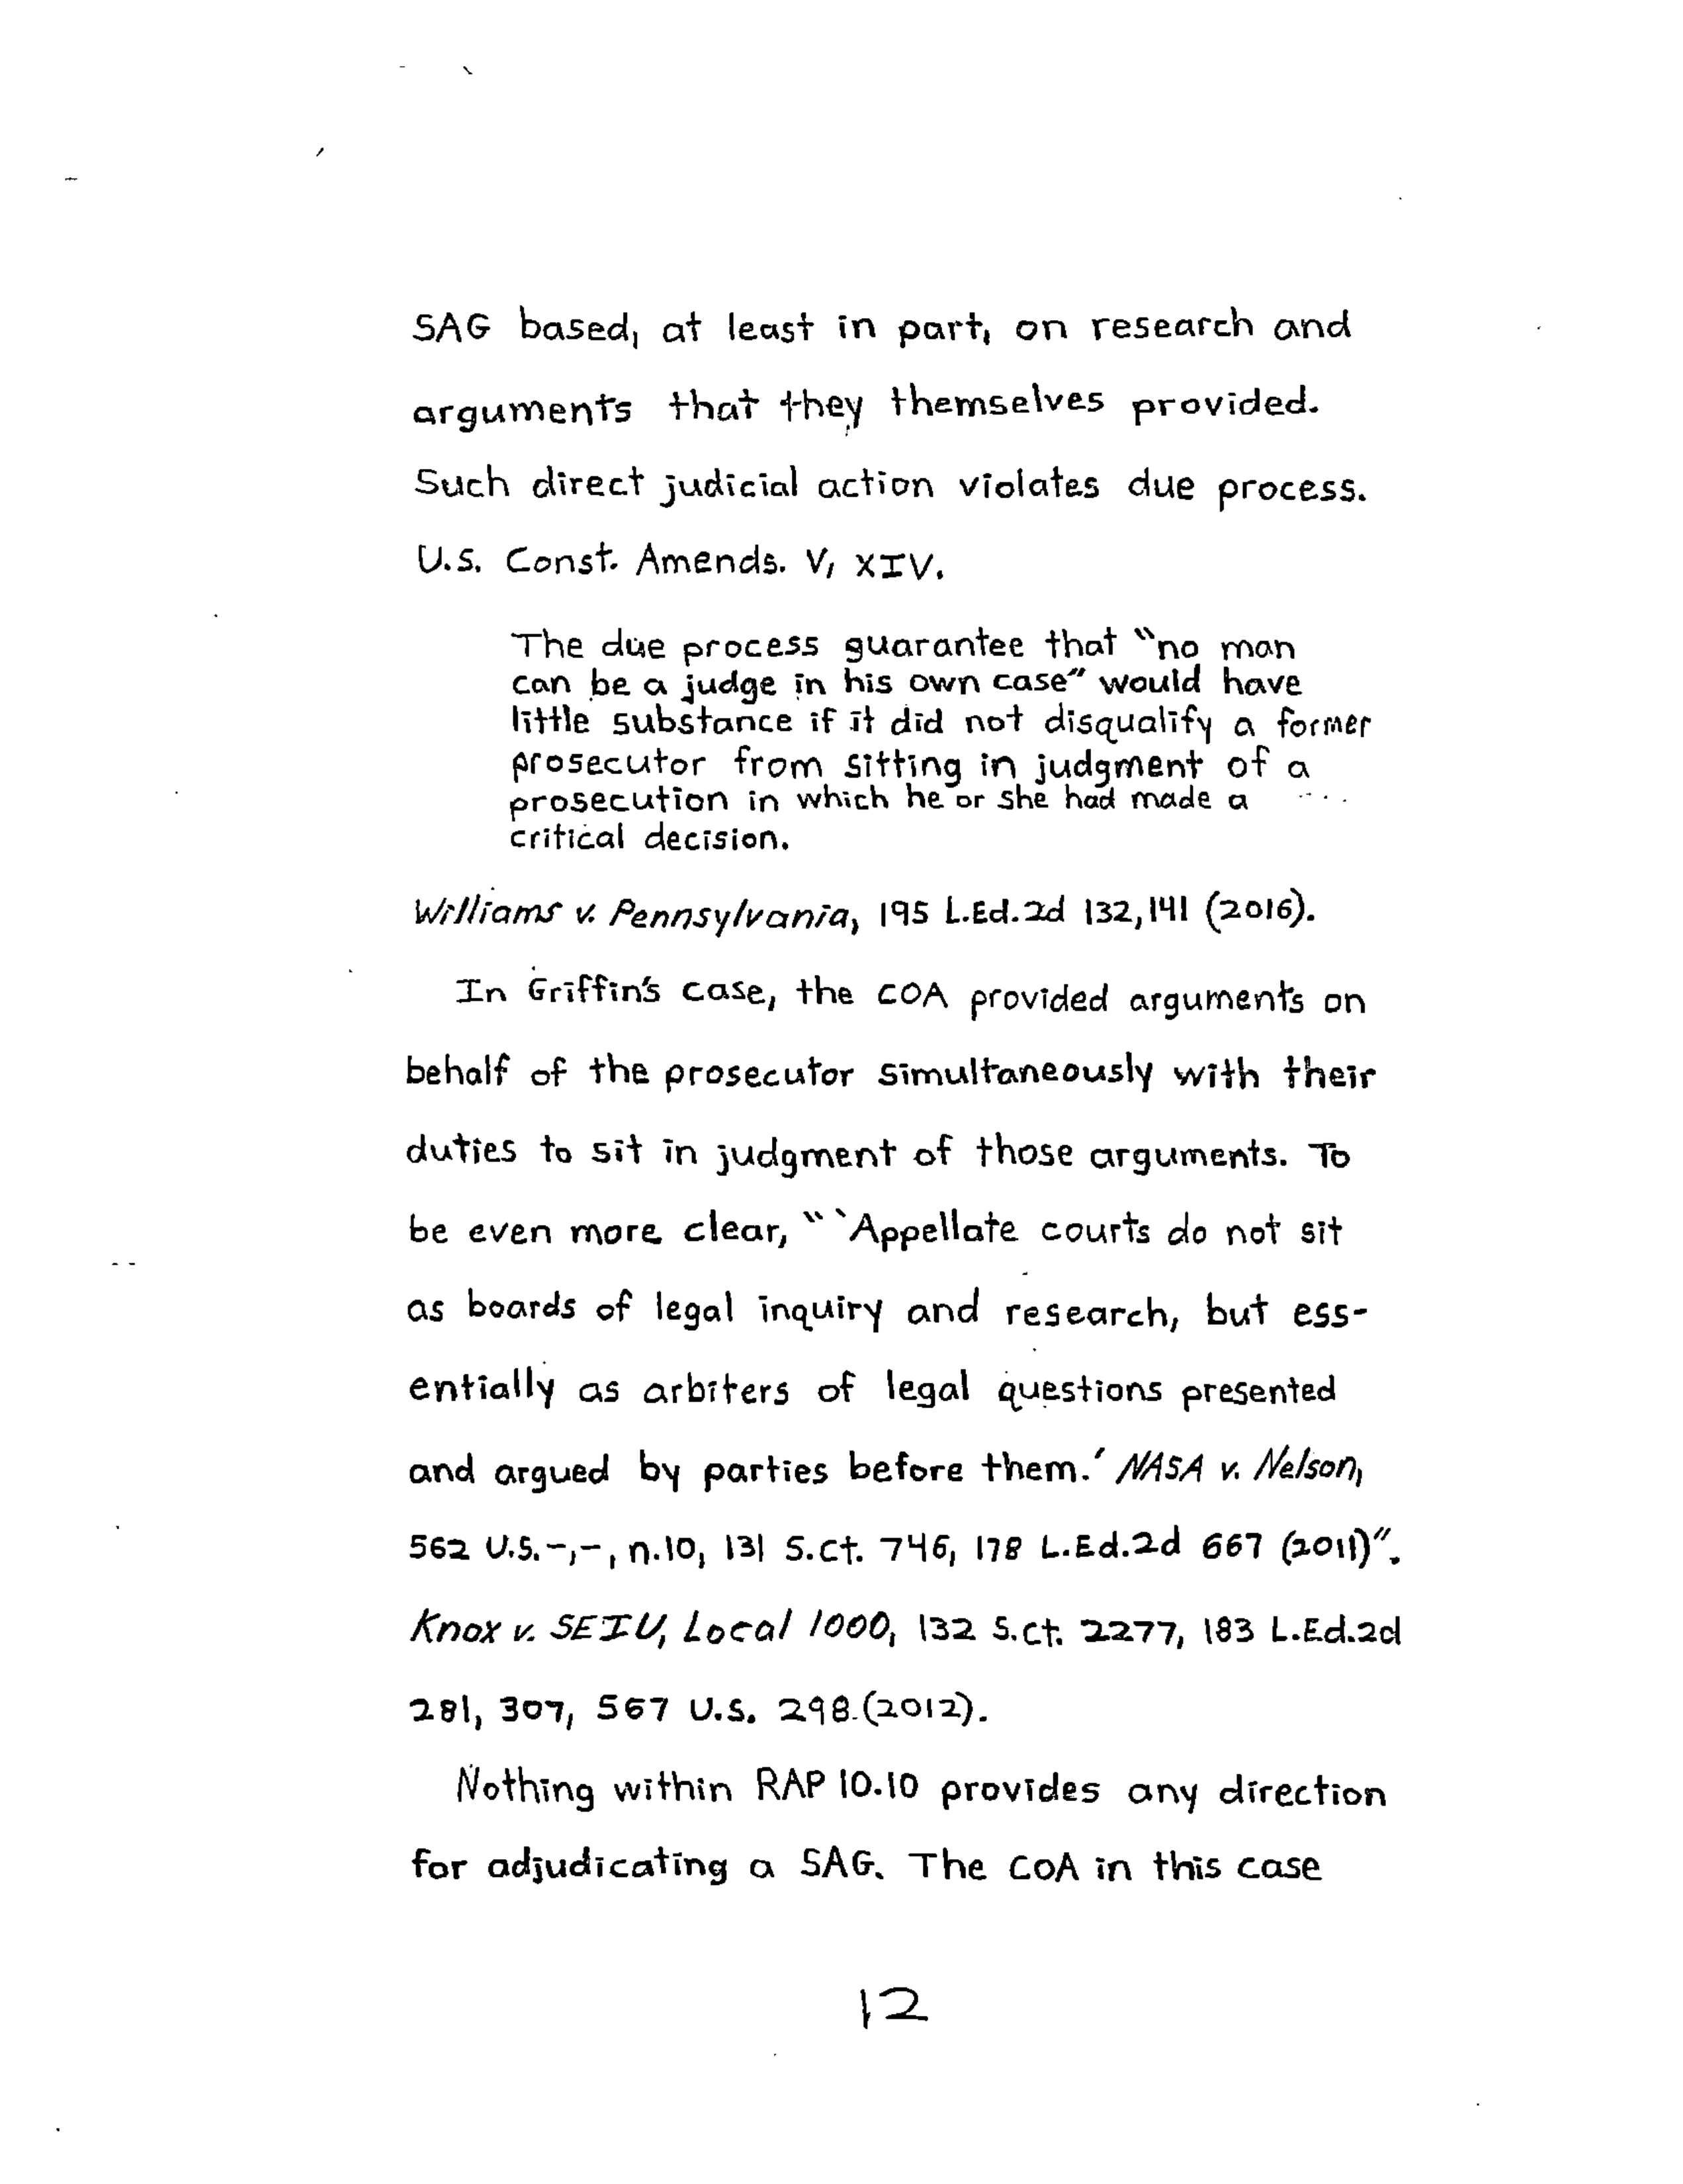 SAG based, at least in part, on research and
arguments that they themselves provided.
Such direct judicial action violates due process.
U.S. Const. Amends. V, XIV.
The due process guarantee that "no man
can be a judge in his own case" would have
little substance if it did not disqualify a former
prosecutor from sitting in judgment of a
prosecution in which he or she had made a
critical decision.
Williams v. Pennsylvania, 195 L.Ed.2d 132,141 (2016).
In Griffin's case, the COA provided arguments on
behalf of the prosecutor simultaneously with their
duties to sit in judgment of those arguments. To
be even more clear, "`Appellate courts do not sit
as boards of legal inquiry and research, but ess-
entially as arbiters of legal questions presented
and argued by parties before them.' NASA v. Nelson,
562 U.S.-,-, n.10, 131 S.Ct. 746, 178 L.Ed.2d 667 (2011)".
Knox v. SEIU, Local 1000, 132 S.Ct. 2277, 183 L.Ed.2d
281, 307, 567 U.S. 298 (2012).
Nothing within RAP 10.10 provides any direction
for adjudicating a SAG. The COA in this case
12